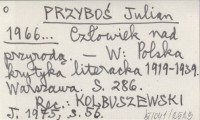 PRZYBOŚ Julian
1966... Człowiek nad
przyrodą. — W: Polska
krytyka literacka 1919-1939.
Warszawa. S. 286.
Rec.: KOLBUSZEWSKI
J. 1975, s. 56.